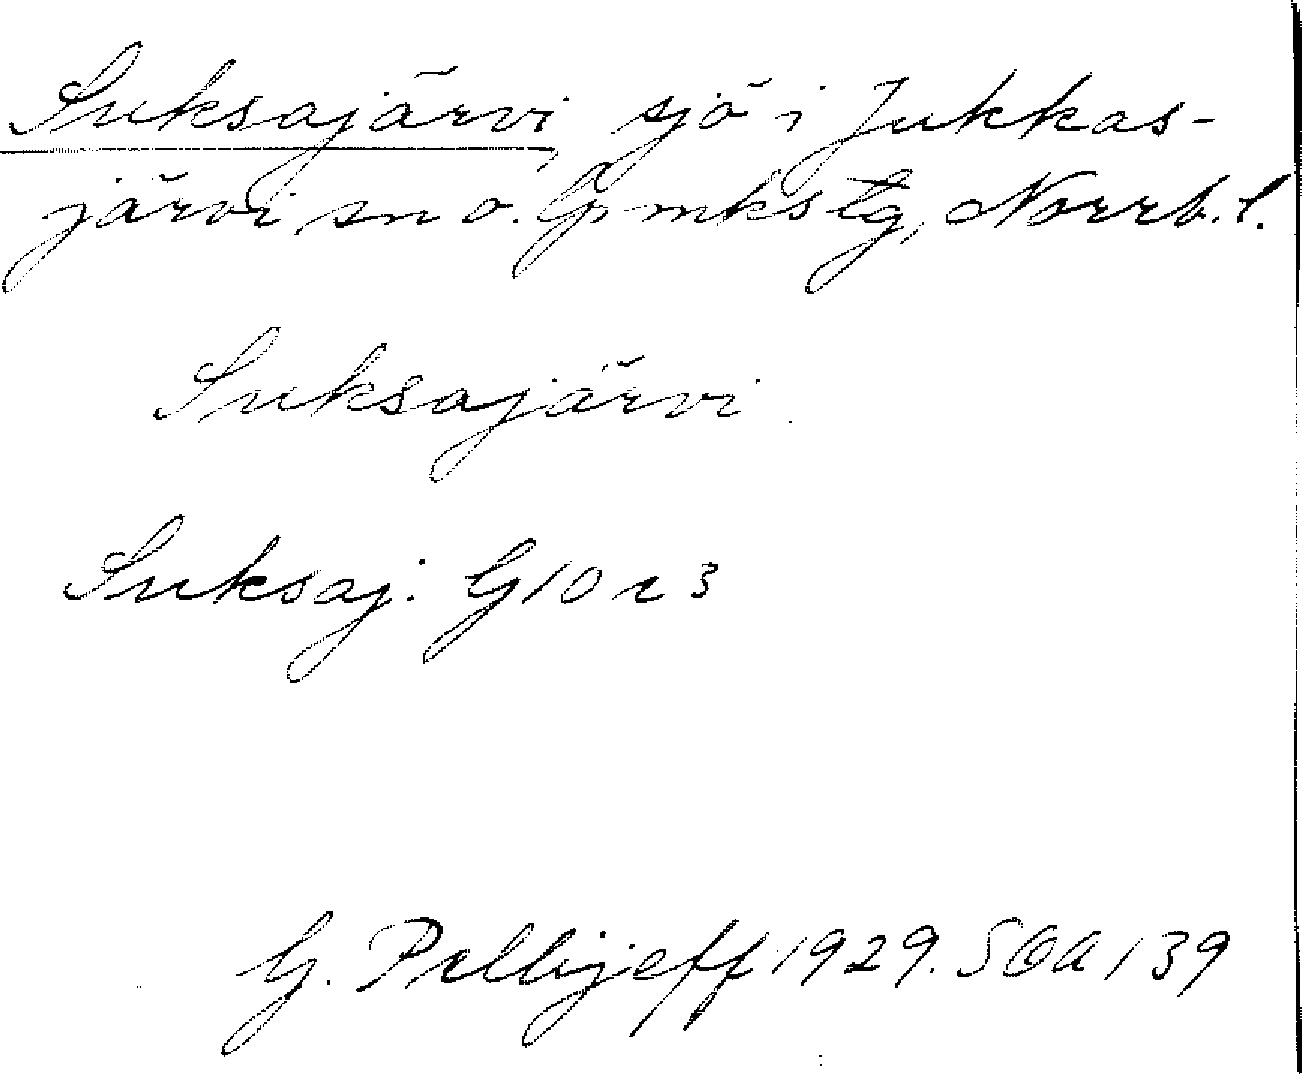 Suksajärvi, sjö i Jukkas-
järvi sn o. lpmkstg, Norrb. l.
Suksajärvi
Suksaj. G10 r 3
G. Pellijeff 1929. SOA 139